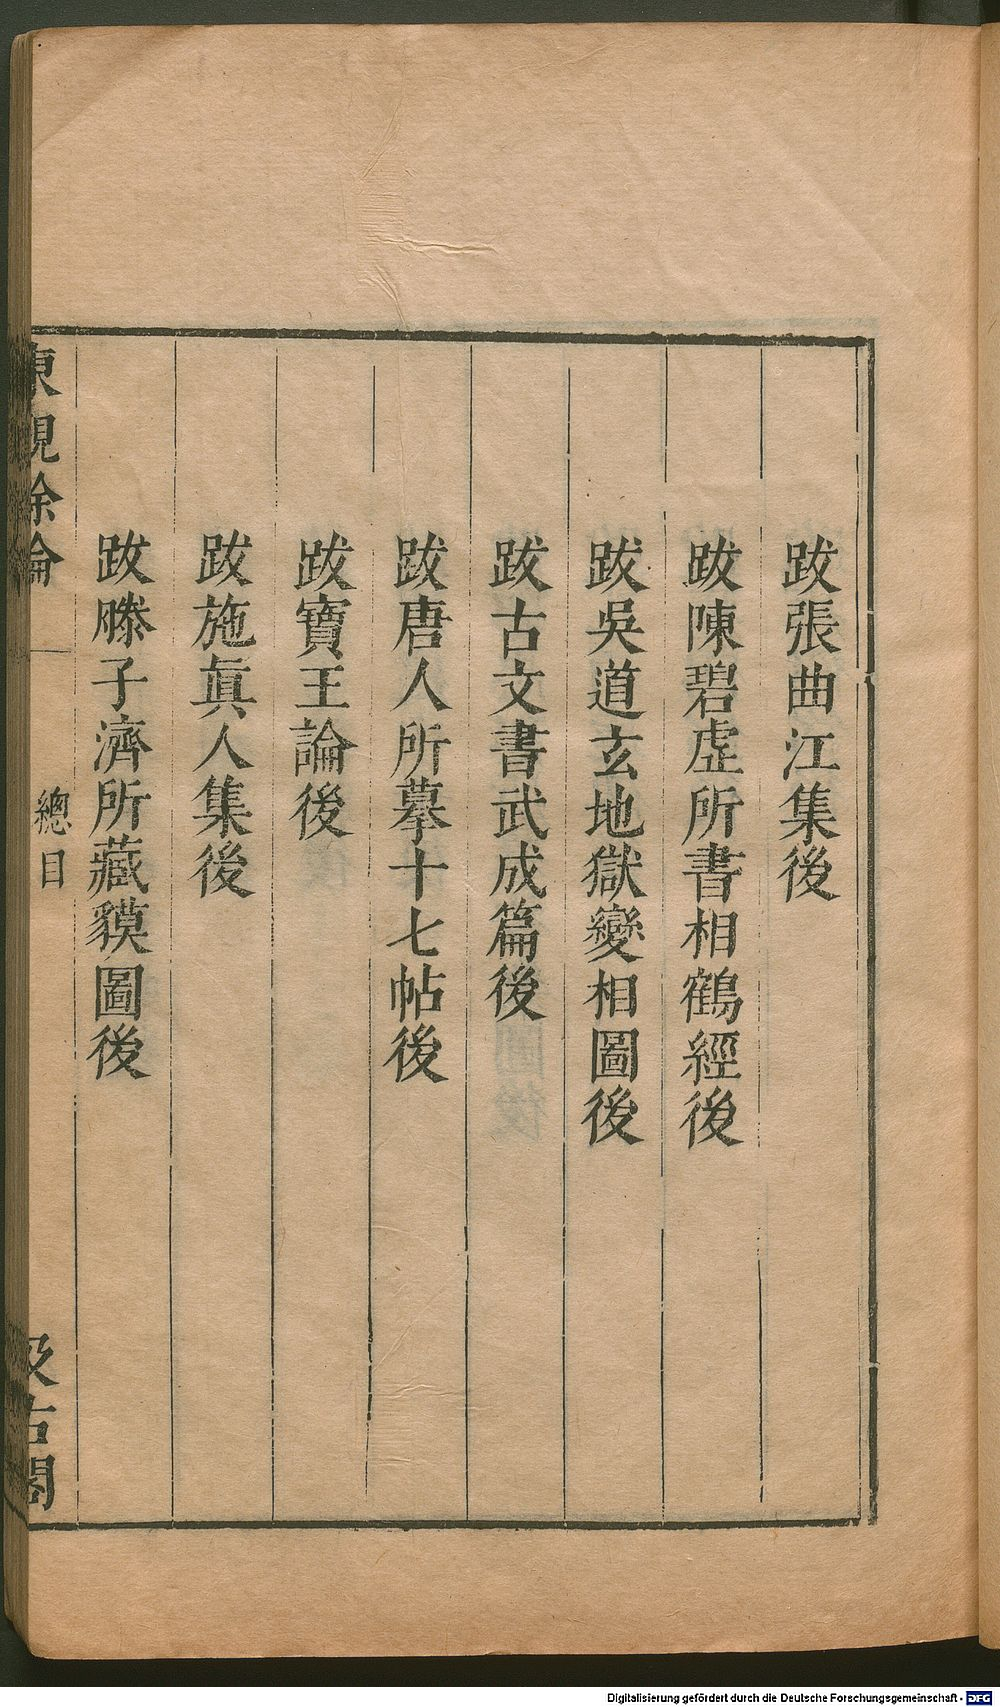 跋張曲江集後
跋陳碧虛所書相鶴經後
跋吳道玄地獄變相圖後
跋古文書武成篇後
跋唐人所摹十七帖後
跋寶王論後
跋施眞人集後
跋滕子濟所藏貘圖後
東觀餘論
總目
汲古閣
Digitalisierung gefördert durch die Deutsche Forschungsgemeinschaft - DFG